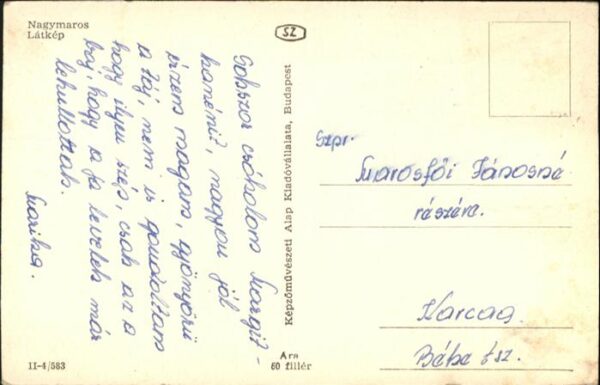 Nagymaros
Látkép
SZ
Sokszor csókolom Margit-
kanémit, nagyon jól
érzem magam, gyönyörű
a táj, nem is gondoltam
hogy ilyen szép, csak az a
baj, hogy a fa levelek már
lehullottak.
Marika.
Képzőművészeti Alap Kiadóvállalata, Budapest
Szpr.
Marosfői Jánosné
részére.
Karcag.
Béke tsz.
II-4/583
Ára
60 fillér